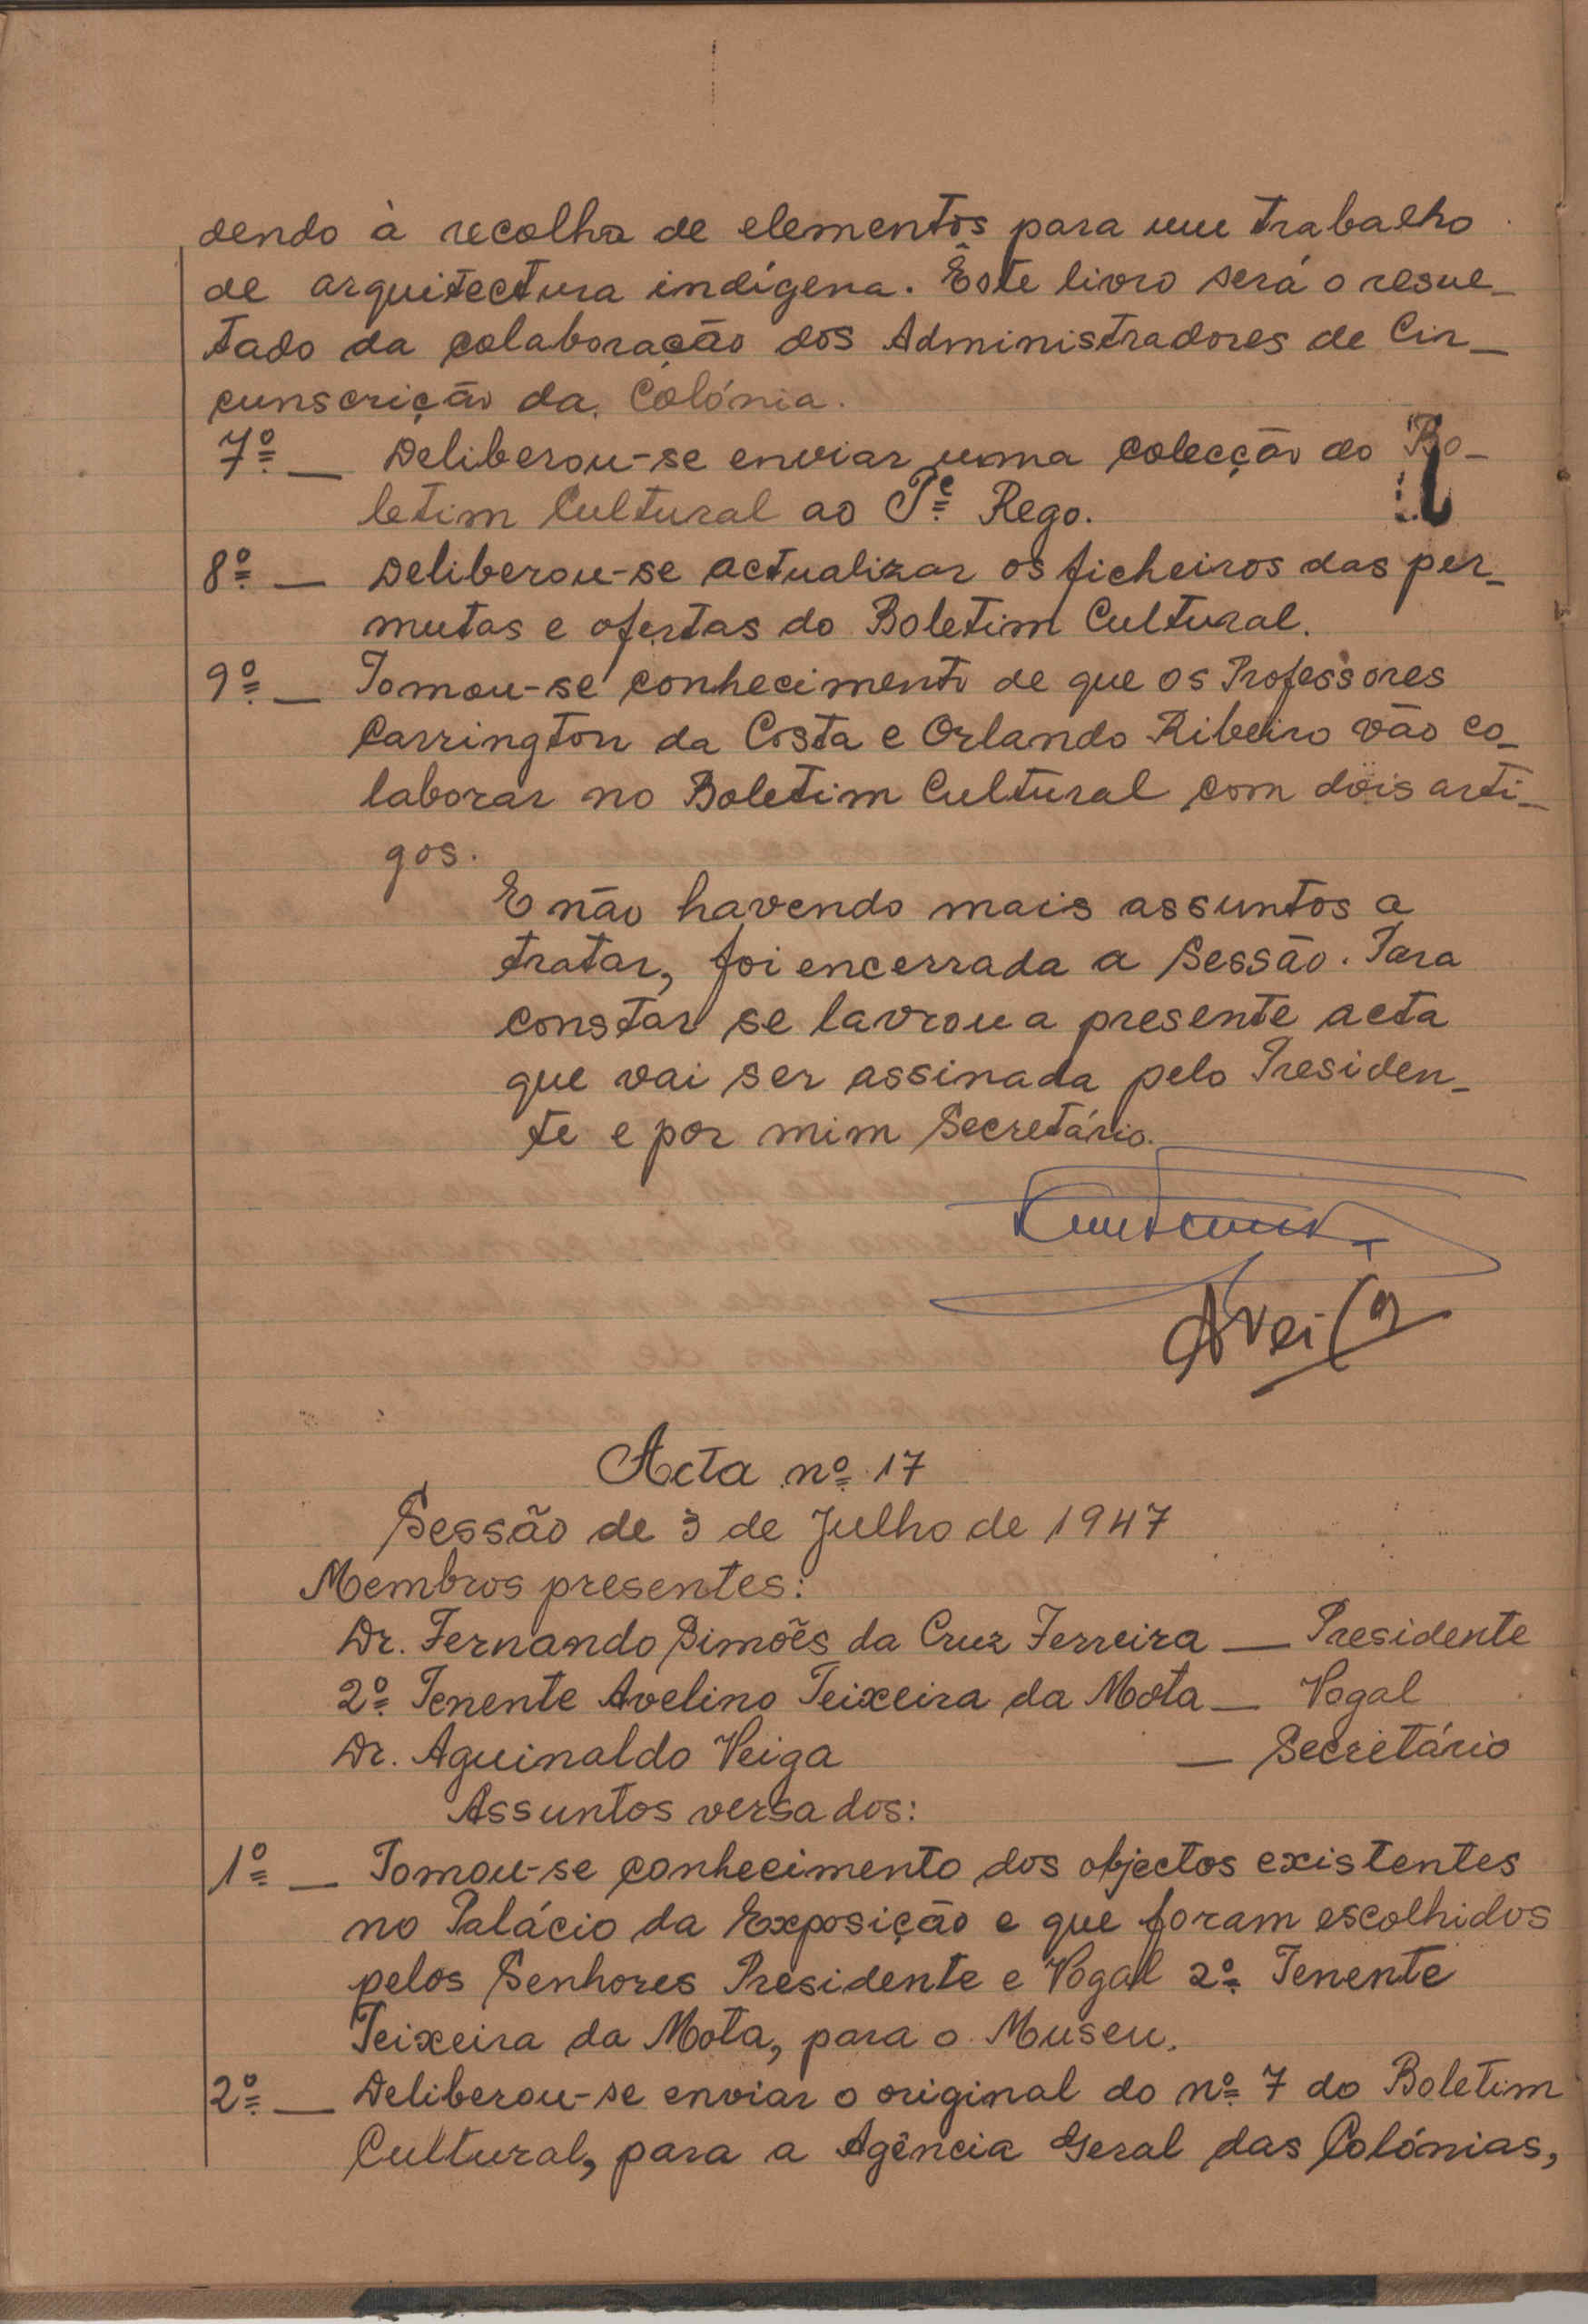 dendo à recolha de elementos para um trabalho
de arquitectura indígena. Êste livro será o resul-
tado da colaboração dos Administradores de Cir-
cunscrição da Colónia.
7º — Deliberou-se enviar uma colecção do Bo-
letim Cultural ao Pe. Rego.
8º — Deliberou-se actualizar os ficheiros das per-
mutas e ofertas do Boletim Cultural.
9º — Tomou-se conhecimento de que os Professores
Carrington da Costa e Orlando Ribeiro vão co-
laborar no Boletim Cultural com dois arti-
gos.
E não havendo mais assuntos a
tratar, foi encerrada a Sessão. Para
constar se lavrou a presente acta
que vai ser assinada pelo Presiden-
te e por mim Secretário.
AVeiga
Acta nº 17
Sessão de 3 de Julho de 1947
Membros presentes:
Dr. Fernando Simões da Cruz Ferreira — Presidente
2º Tenente Avelino Teixeira da Mota — Vogal
Dr. Aguinaldo Veiga — Secretário
Assuntos versados:
1º — Tomou-se conhecimento dos objectos existentes
no Palácio da Exposição e que foram escolhidos
pelos Senhores Presidente e Vogal 2º Tenente
Teixeira da Mota, para o Museu.
2º — Deliberou-se enviar o original do nº 7 do Boletim
Cultural, para a Agência Geral das Colónias,